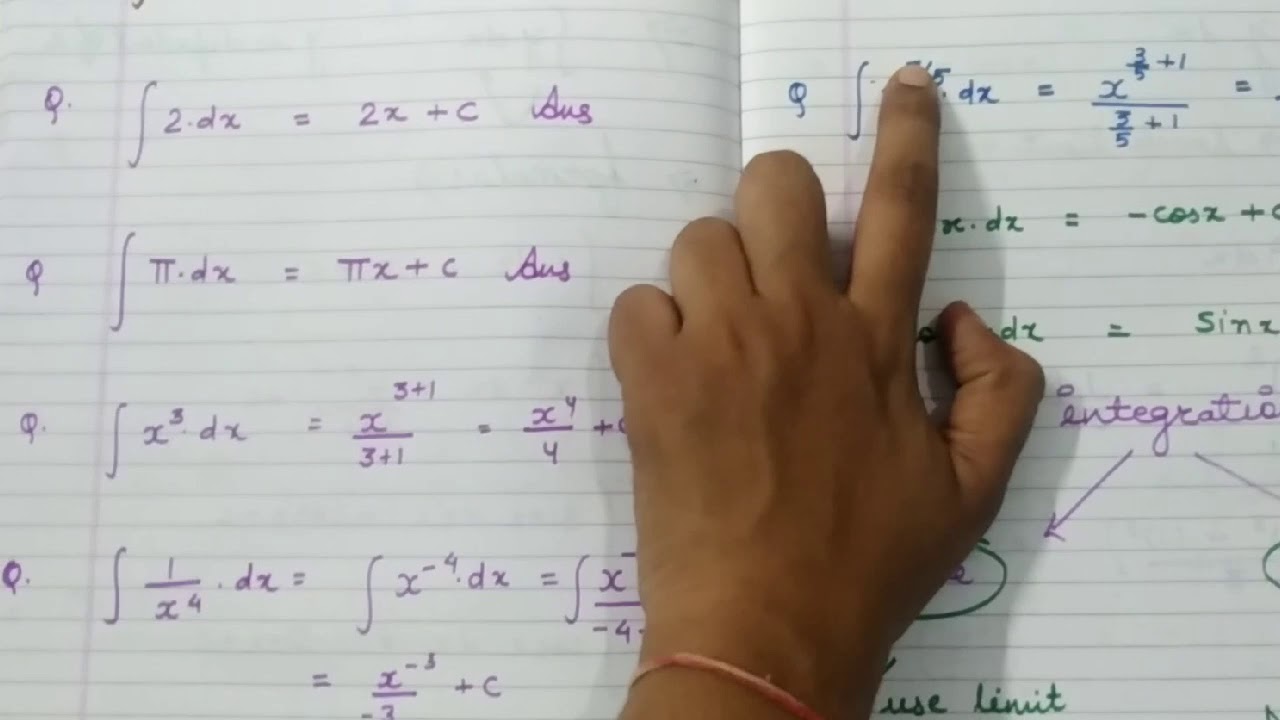 Q. ∫ 2·dx = 2x + C Ans
Q ∫ π·dx = πx + C Ans
Q. ∫ x³·dx = x^(3+1)/(3+1) = x⁴/4 +
Q. ∫ 1/x⁴ · dx = ∫ x⁻⁴·dx = ∫ x⁻ / -4
= x⁻³/-3 + C
Q ∫ 5 · dx = x^(3/5 + 1)/(3/5 + 1) =
x·dx = -cosx + C
dx = Sinx
integratio
use limit